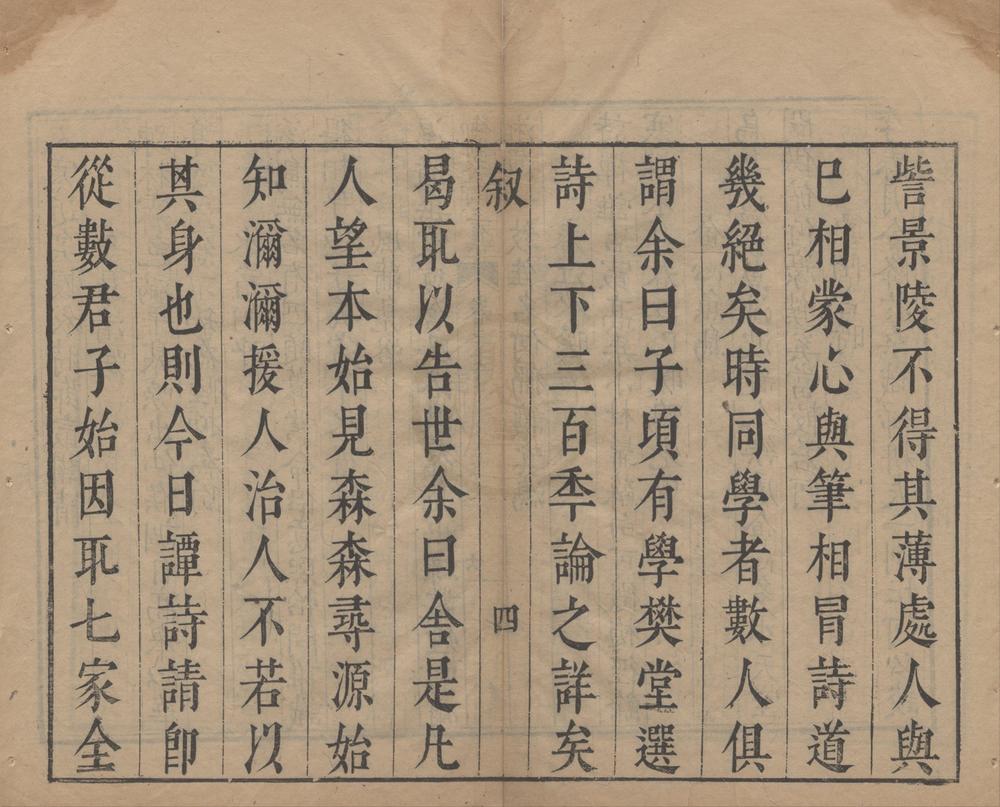 訾景陵不得其薄處人與
已相蒙心與筆相冐詩道
幾絕矣時同學者數人俱
謂余曰子頃有學樊堂選
詩上下三百秊論之詳矣
叙 四
曷耴以告世余曰舍是凡
人望本始見森森尋源始
知瀰瀰援人治人不若以
其身也則今日譚詩請卽
從數君子始因耴七家全